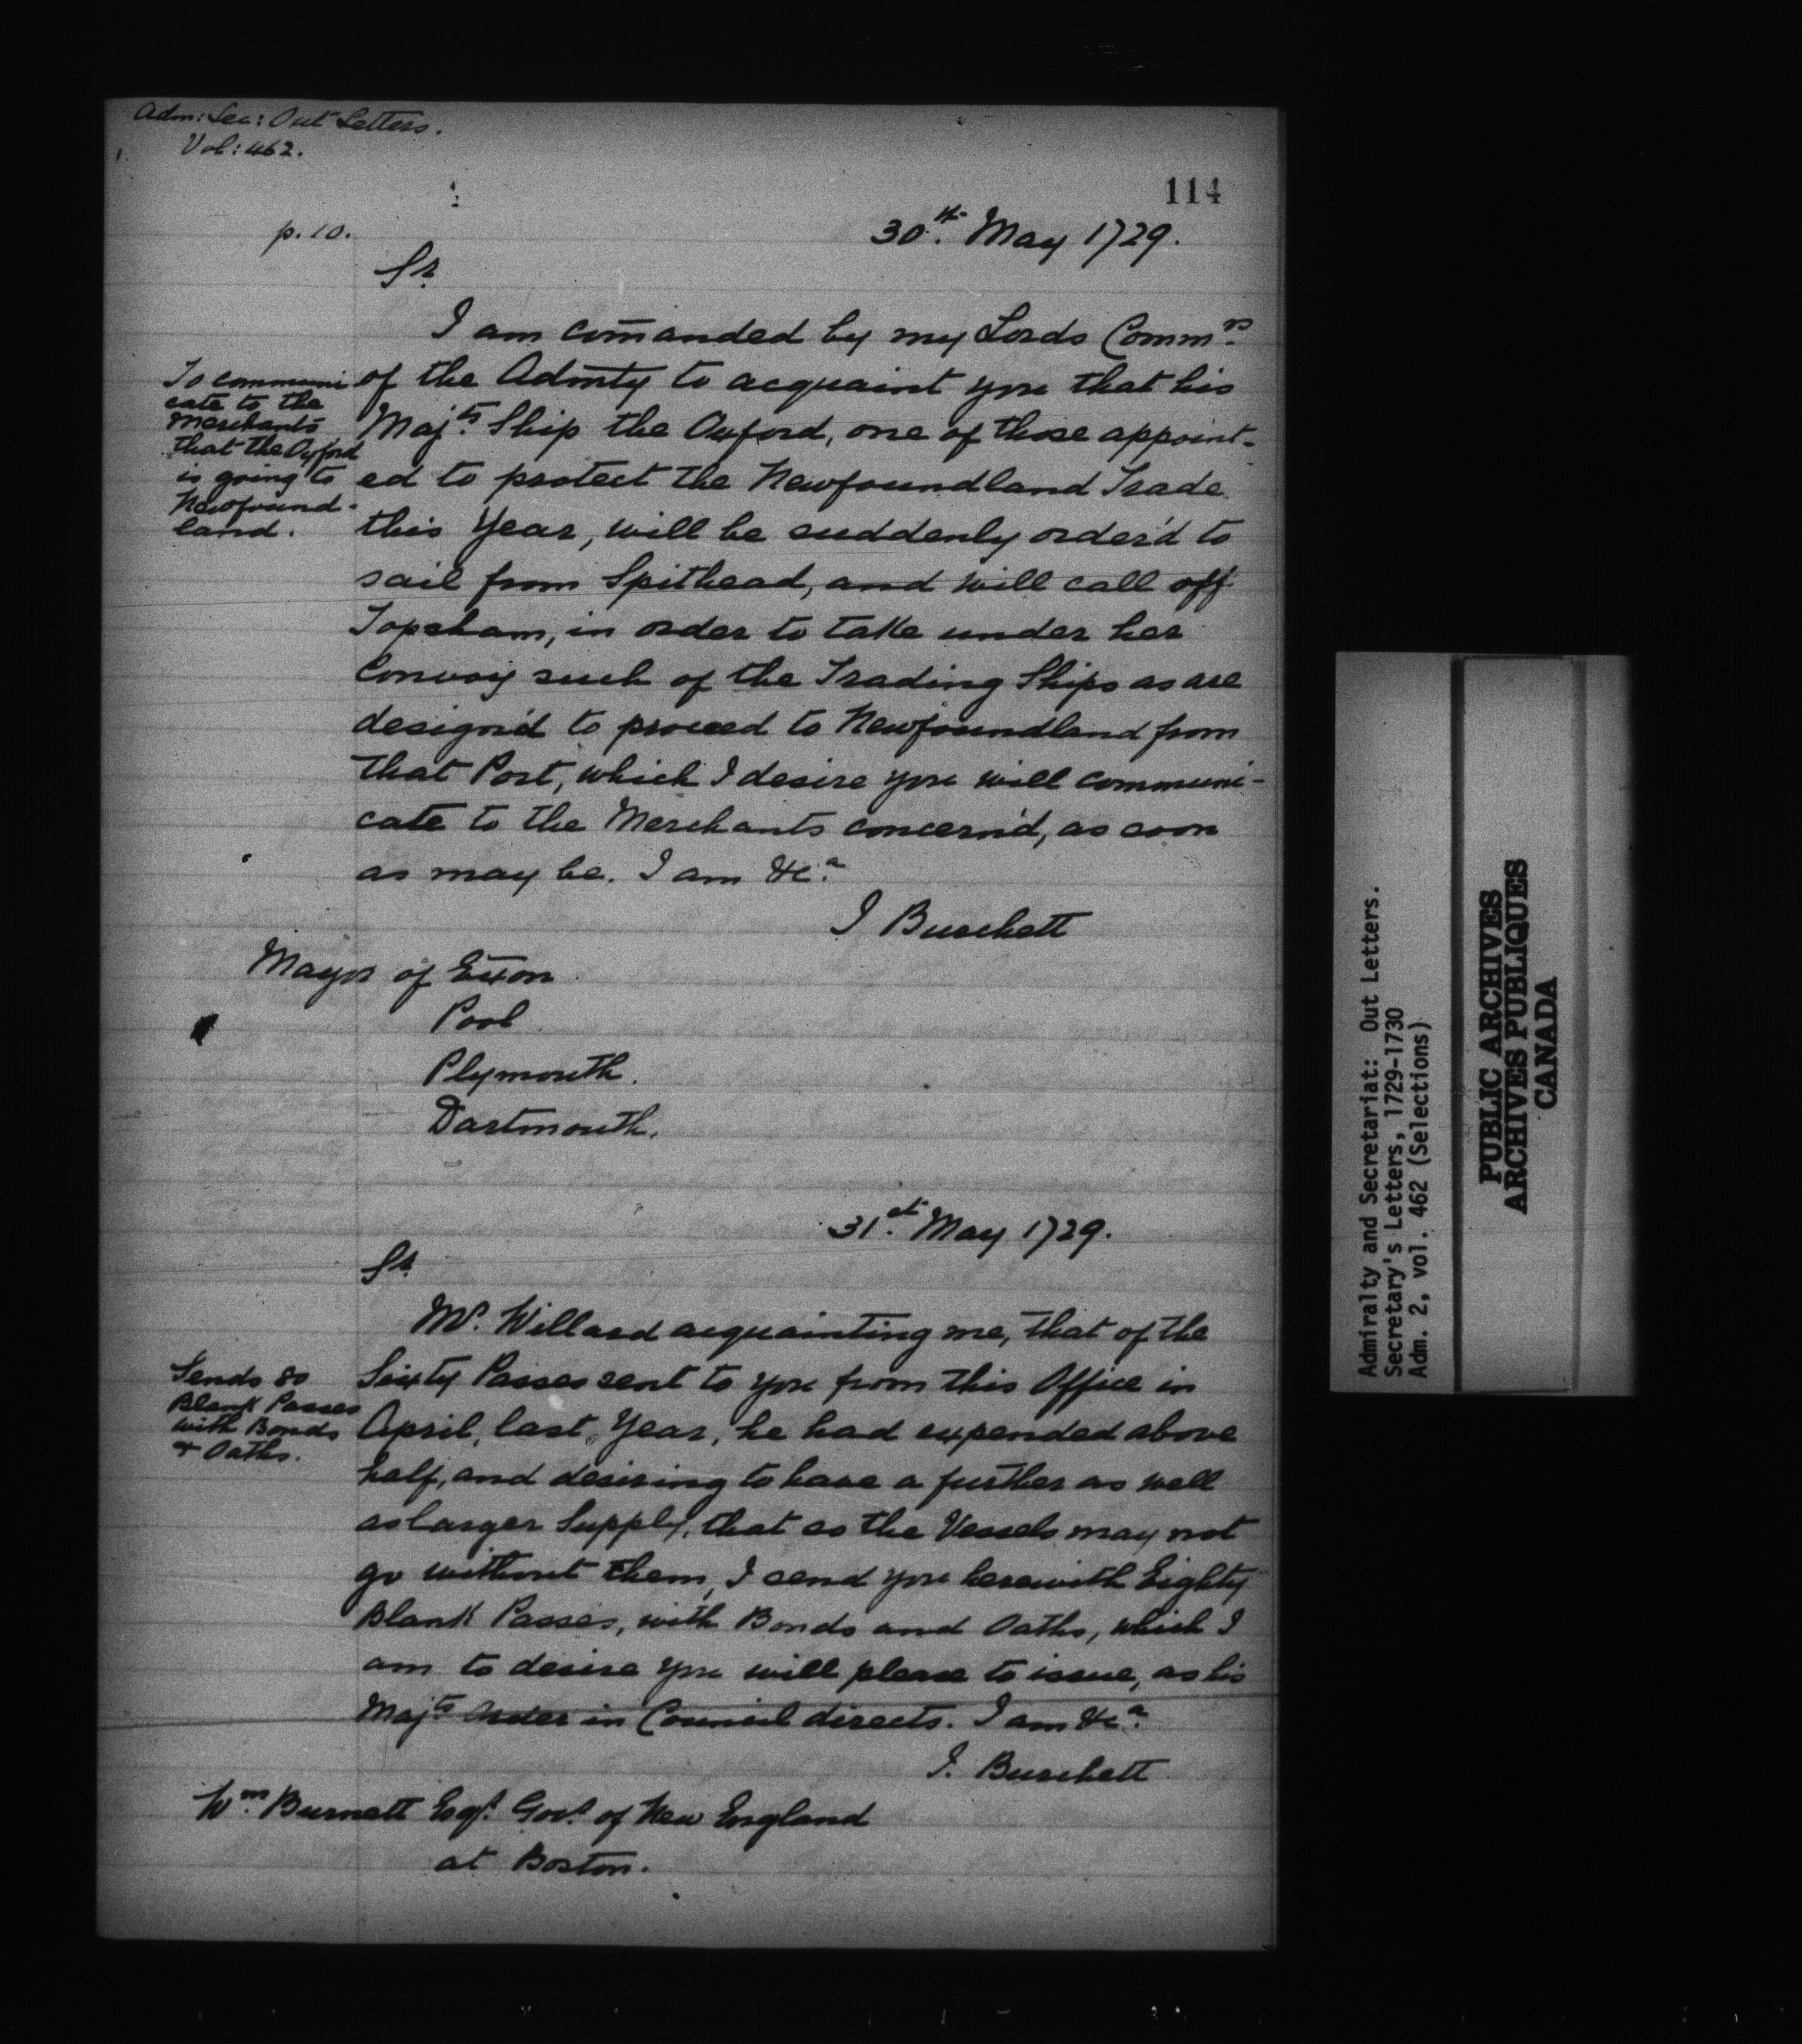 Adm: Sec: Out Letters.
Vol: 462.
114
p. 10.
30th. May 1729.
Sr.
I am com̄anded by my Lords Commrs.
of the Admty to acquaint you that his
Majts. Ship the Oxford, one of those appoint-
ed to protect the Newfoundland Trade
this Year, will be suddenly order'd to
sail from Spithead, and will call off
Topsham, in order to take under her
Convoy such of the Trading Ships as are
design'd to proceed to Newfoundland from
that Port, which I desire you will communi-
cate to the Merchants concern'd, as soon
as may be. I am &ca.
J Burchett
To communi
cate to the
Merchants
that the Oxford
is going to
Newfound-
land.
Mayor of Exon
Pool
Plymouth.
Dartmouth.
31st. May 1729.
Sr.
Mr. Willard acquainting me, that of the
Sixty Passes sent to you from this Office in
April, last Year, he had expended above
half, and desiring to have a further as well
as larger Supply, that so the Vessels may not
go without them, I send you herewith Eighty
Blank Passes, with Bonds and Oaths, which I
am to desire you will please to issue, as his
Majts. Order in Council directs. I am &ca.
J. Burchett
Sends 80
Blank Passes
with Bonds
& Oaths.
Wm. Burnett Esqr. Govr. of New England
at Boston.
Admiralty and Secretariat: Out Letters.
Secretary's Letters, 1729-1730
Adm. 2, vol. 462 (Selections)
PUBLIC ARCHIVES
ARCHIVES PUBLIQUES
CANADA